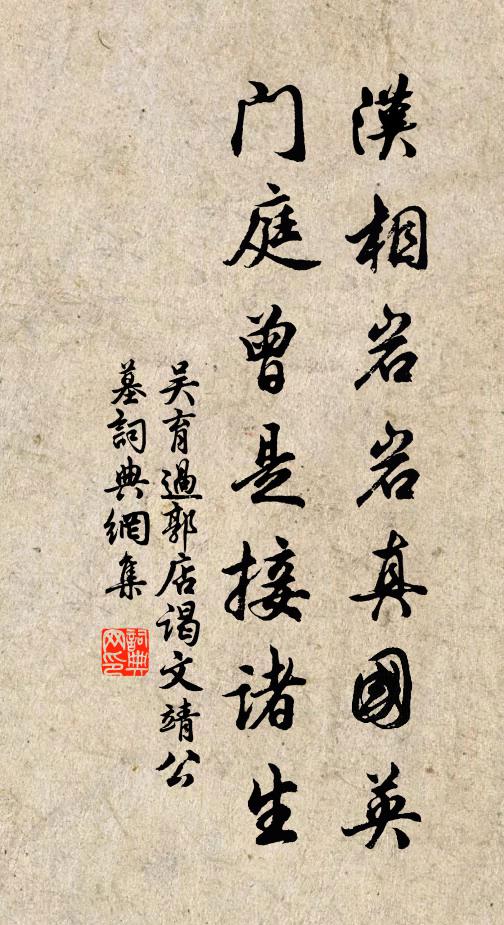 漢相岩岩真國英
门庭曾是接诸生
吴育過郭店谒文靖公
墓詞典網集
詞典网印